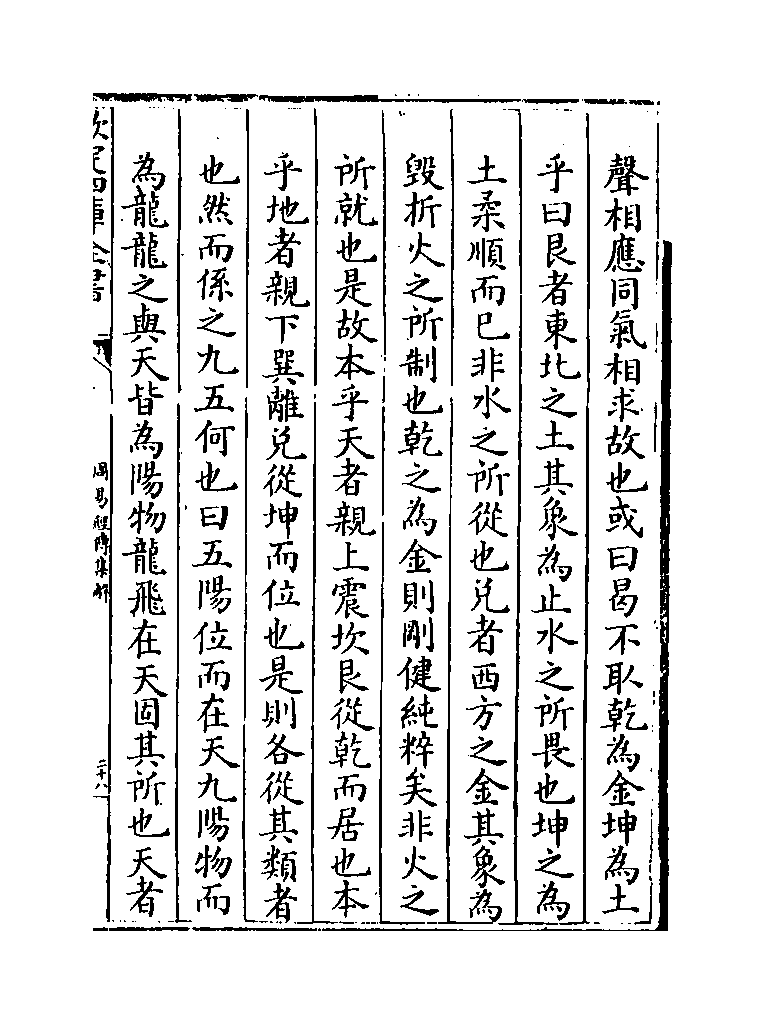 聲相應同氣相求故也或曰曷不取乾為金坤為土
乎曰艮者東北之土其象為止水之所畏也坤之為
土柔順而已非水之所從也兌者西方之金其象為
毀折火之所制也乾之為金則剛健純粹矣非火之
所就也是故本乎天者親上震坎艮從乾而居也本
乎地者親下巽離兌從坤而位也是則各從其類者
也然而係之九五何也曰五陽位而在天九陽物而
為龍龍之與天皆為陽物龍飛在天固其所也天者
欽定四庫全書
周易經傳集解
二十八